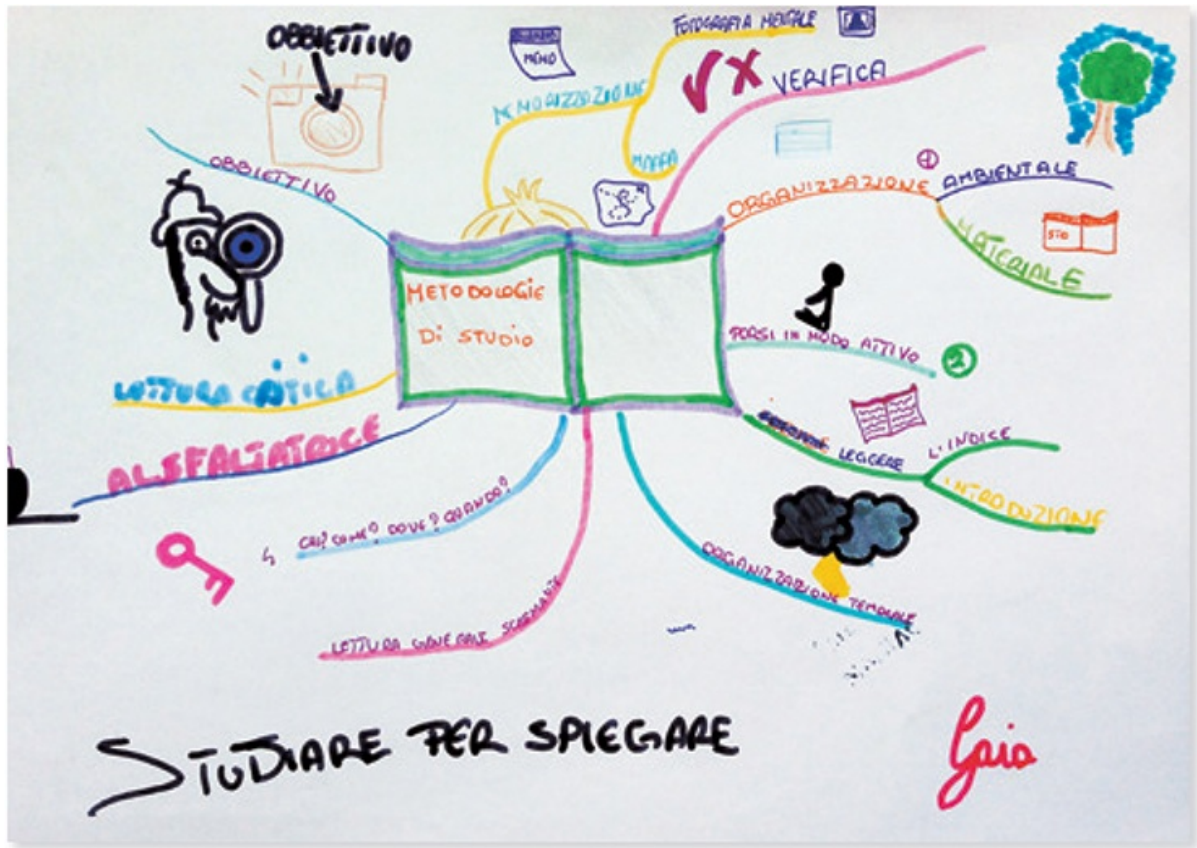 OBBIETTIVO
MEMO
FOTOGRAFIA MENTALE
MEMORIZZAZIONE
MAPPA
VERIFICA
OBBIETTIVO
ORGANIZZAZIONE
1
AMBIENTALE
MATERIALE
STO
METODOLOGIE
DI STUDIO
PORSI IN MODO ATTIVO
2
LETTURA CRITICA
ALSFALTATRICE
LEGGERE
L'INDICE
INTRODUZIONE
CHI? COME? DOVE? QUANDO?
ORGANIZZAZIONE TEMPORALE
LETTURA GENERALE
STUDIARE PER SPIEGARE
Gaia